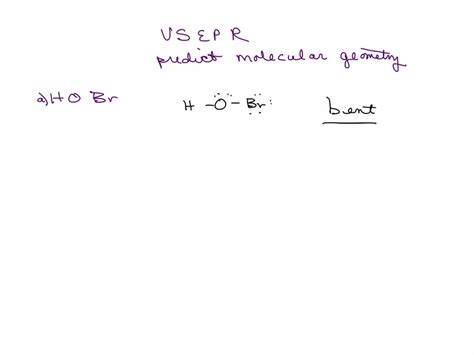 VSEPR
predict molecular geometry
a) HO Br H - O - Br: bent